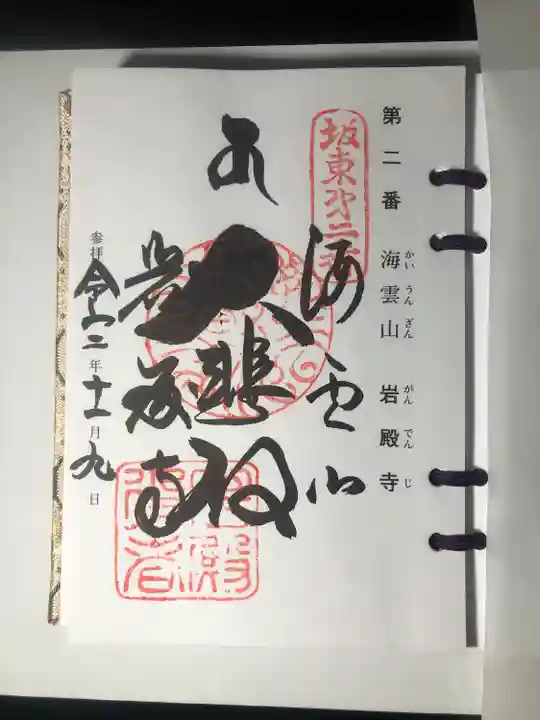 第二番 海雲山 岩殿寺
かいうんざん がんでんじ
坂東第二番
海雲山
大悲殿
岩殿寺
参拝 令和二年十一月九日